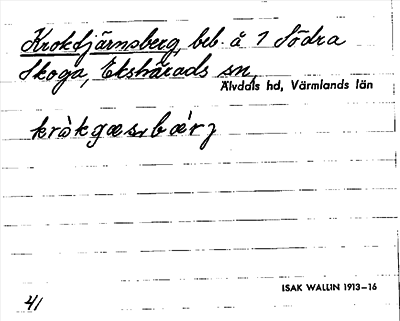 Krokfjärnsberg, beb. å 1 Södra
Skoga, Ekshärads sn,
Älvdals hd, Värmlands län
kròkgæsɩbǽrj
ISAK WALLIN 1913–16
41